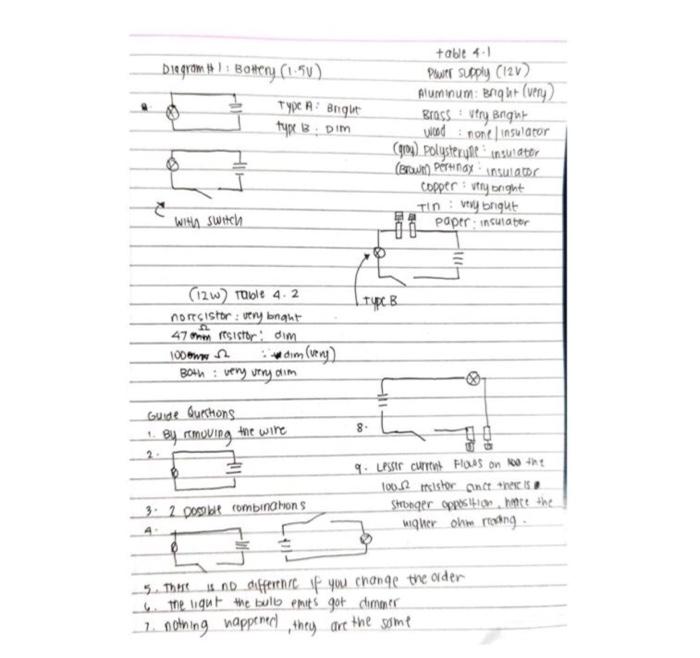 Diagram # 1 : Battery (1.5V)
Type A : Bright
type B : Dim
With switch
table 4.1
Power supply (12V)
Aluminum : Bright (very)
Brass : very Bright
wood : none / insulator
(gray) Polysteryne : insulator
(Brown) Pertinax : insulator
copper : very bright
Tin : very bright
paper : insulator
Type B
(12W) Table 4.2
no resistor : very bright
47 Ω resistor : dim
100 Ω : dim (very)
Both : very very dim
Guide Questions
1. By removing the wire
2.
3. 2 possible combinations
4.
5. There is no difference if you change the order
6. The light the bulb emits got dimmer
7. nothing happened, they are the same
8.
9. Lesser current flows on the
100Ω resistor since there is
stronger opposition, hence the
higher ohm reading.